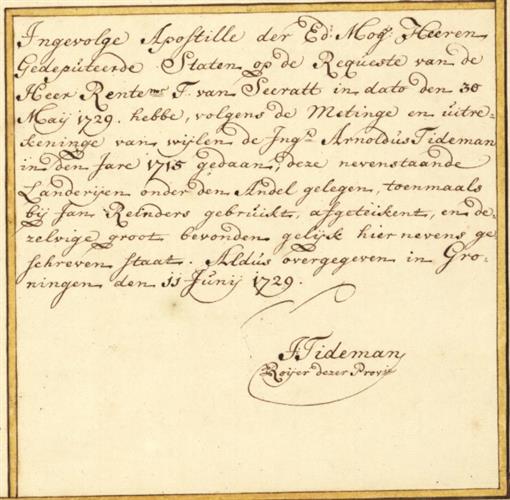 Ingevolge Apostille der Ed: Mog: Heeren
Gedeputeerde Staten op de Requeste van de
Heer Rentemr. T. van Seeratt in dato den 30
Maij 1729. hebbe, volgens de Metinge en uitre-
keninge van wijlen de Ingr. Arnoldus Tideman
in den Jare 1715 gedaan, deze nevenstaande
Landerijen onder den Andel gelegen, toenmaals
bij Jan Reinders gebruikt, afgeteikent, en de-
zelvige groot bevonden gelijk hier nevens ge
schreven staat. Aldus overgegeven in Gro-
ningen den 11 Junij 1729.
Tideman
Roijer dezer Prov: